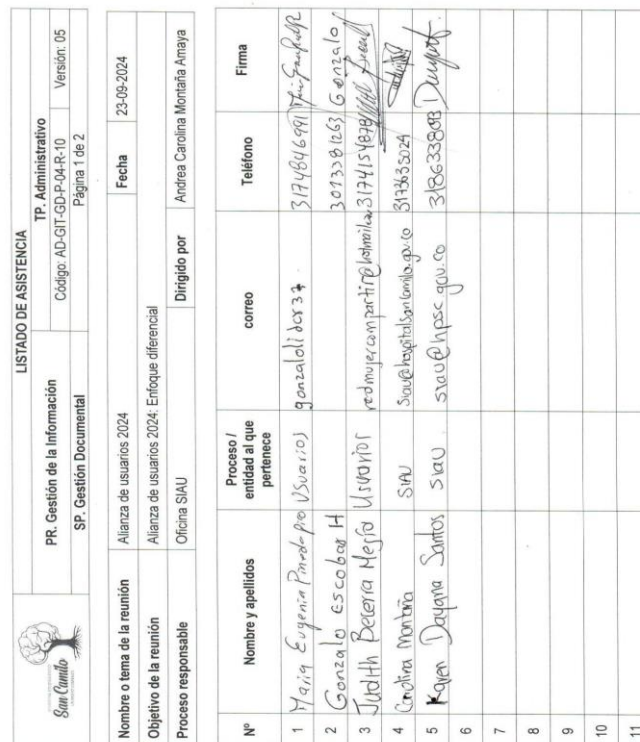 San Camilo
LISTADO DE ASISTENCIA
PR. Gestión de la Información
TP. Administrativo
SP. Gestión Documental
Código: AD-GIT-GD-P-04-R-10
Versión: 05
Página 1 de 2
Nombre o tema de la reunión Alianza de usuarios 2024 Fecha 23-09-2024
Objetivo de la reunión Alianza de usuarios 2024: Enfoque diferencial
Proceso responsable Oficina SIAU Dirigido por Andrea Carolina Montaña Amaya
Nº Nombre y apellidos Proceso / entidad al que pertenece correo Teléfono Firma
1 Maria Eugenia Usuarios 3174846991
2 Gonzalo Escobar H gonzalolidor37 3013381263 Gonzalo
3 Judith Becerra Mejia Usuarior redmujercompartir@hotmail.com 3174154878
4 Carolina Montaña SIAU Siau@hospitalsancamilo.gov.co 3173635024
5 Karen Dayana Santos SIAU siau@hpsc.gov.co 3186338098
6
7
8
9
10
11